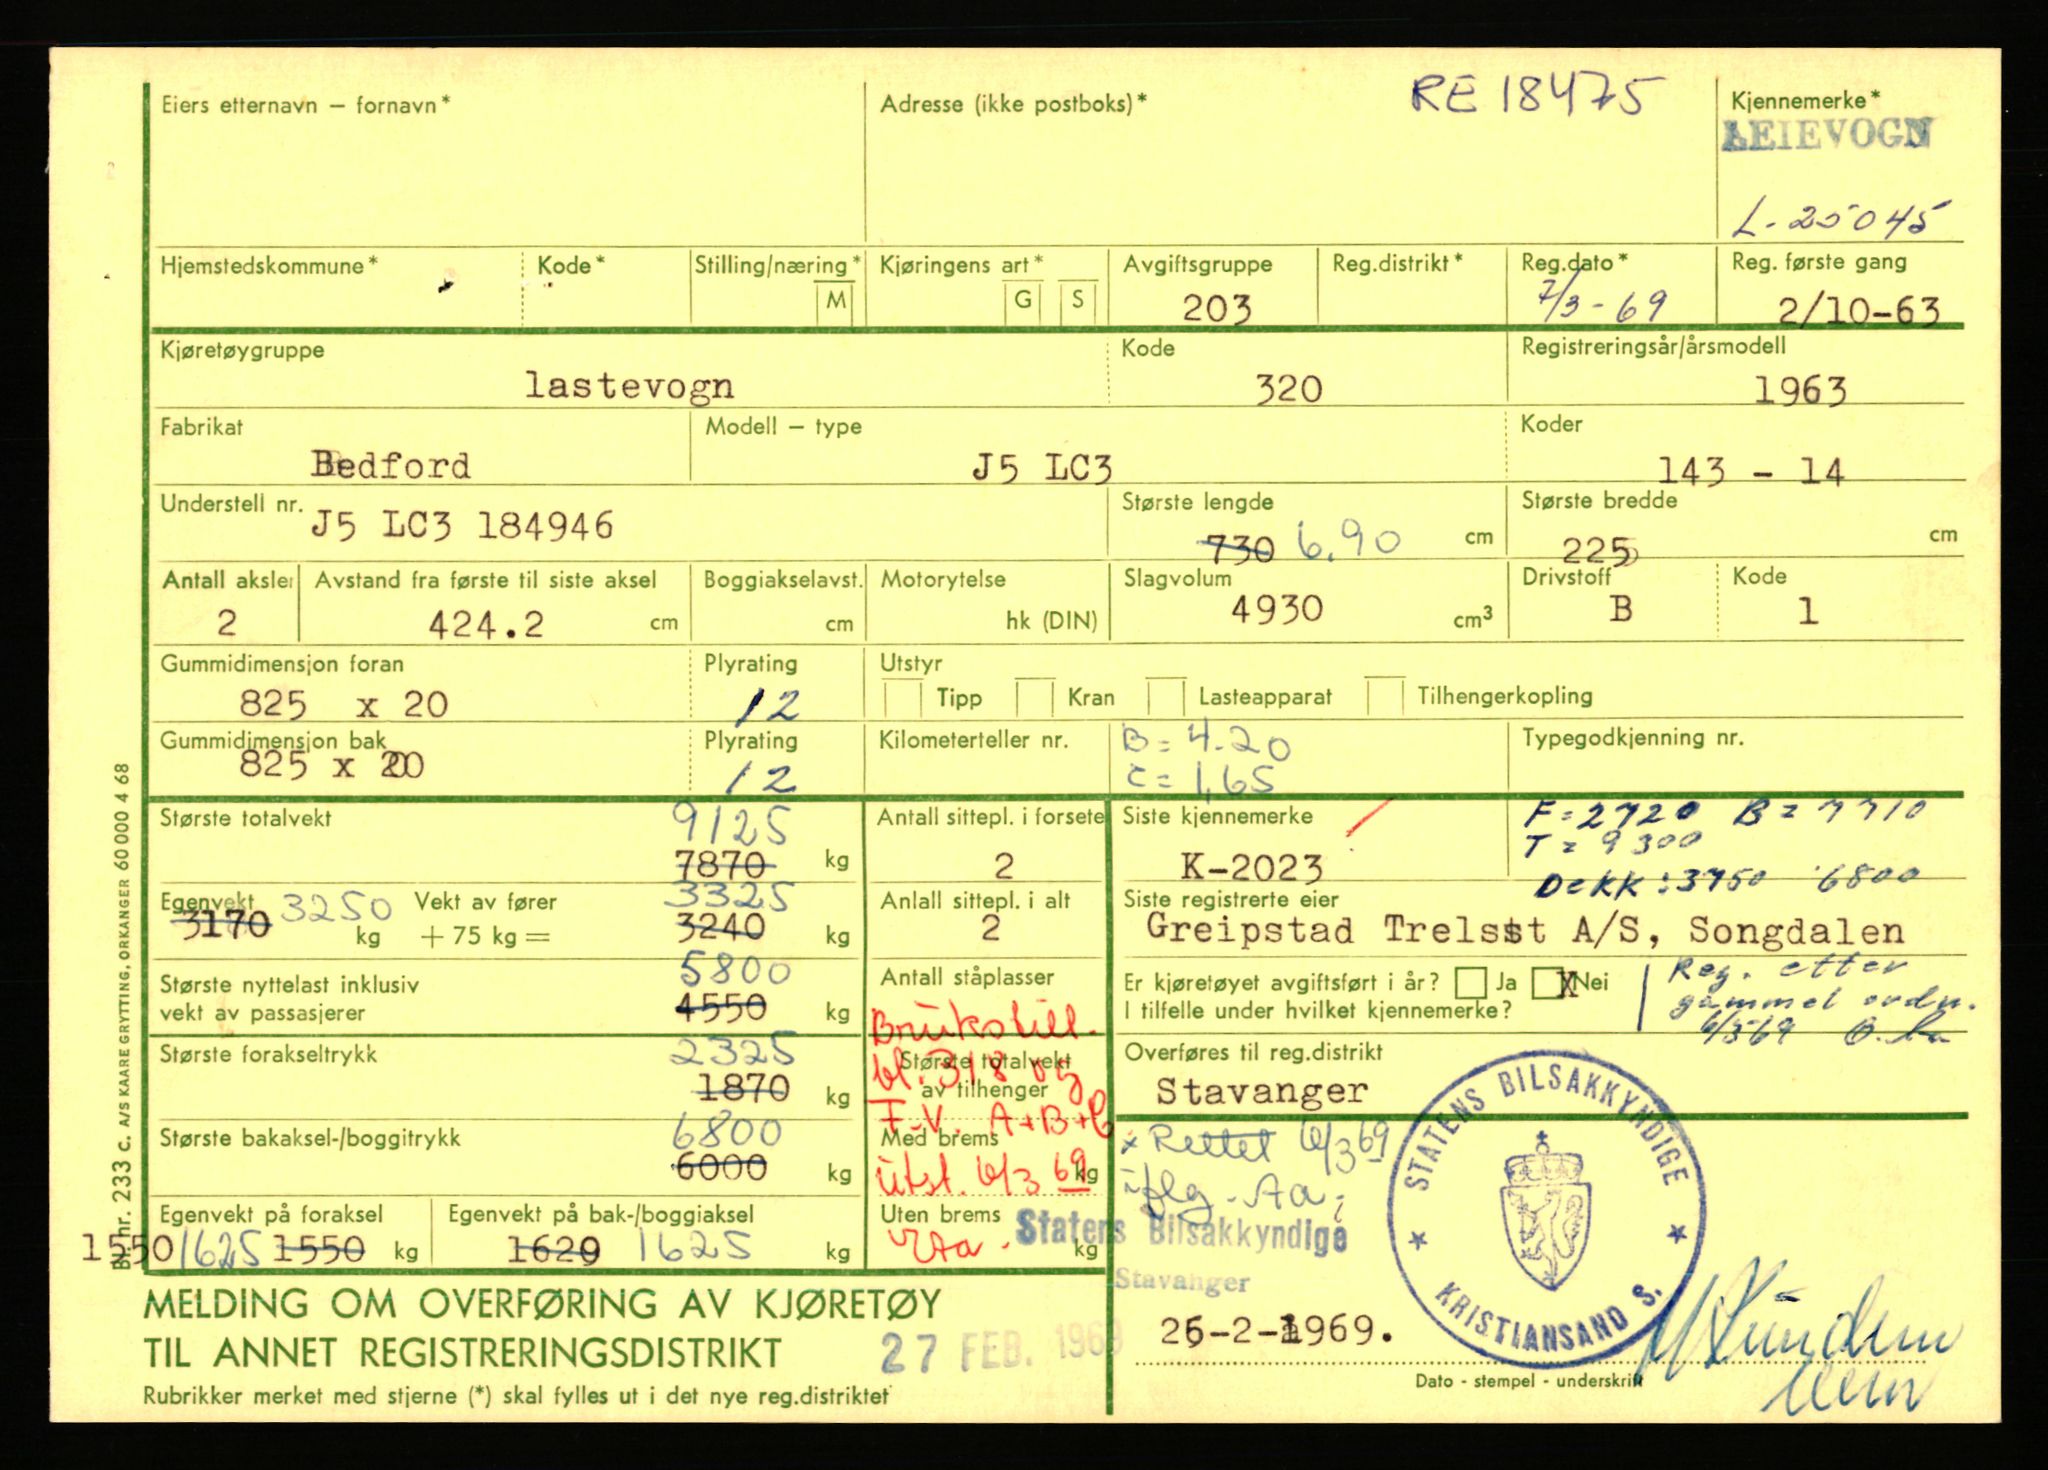 RE 18475
Eiers etternavn – fornavn*
Adresse (ikke postboks)*
Kjennemerke*
LEIEVOGN
L-25045
Hjemstedskommune*
Kode*
Stilling/næring*
M
Kjøringens art*
G
S
Avgiftsgruppe
203
Reg.distrikt*
Reg.dato*
7/3-69
Reg. første gang
2/10-63
Kjøretøygruppe
lastevogn
Kode
320
Registreringsår/årsmodell
1963
Fabrikat
Bedford
Modell – type
J5 LC3
Koder
143 - 14
Understell nr.
J5 LC3 184946
Største lengde
730 6.90 cm
Største bredde
225 cm
Antall aksler
2
Avstand fra første til siste aksel
424.2 cm
Boggiakselavst.
cm
Motorytelse
hk (DIN)
Slagvolum
4930 cm³
Drivstoff
B
Kode
1
Gummidimensjon foran
825 x 20
Plyrating
12
Utstyr
Tipp
Kran
Lasteapparat
Tilhengerkopling
Gummidimensjon bak
825 x 20
Plyrating
12
Kilometerteller nr.
B = 4.20
C = 1,65
Typegodkjenning nr.
Største totalvekt
9125
7870 kg
Antall sittepl. i forsete
2
Siste kjennemerke
K-2023
T = 9300
DeKK: 3750 6800
Egenvekt
3170 3250 kg
Vekt av fører
+ 75 kg =
3325
3240 kg
Antall sittepl. i alt
2
Siste registrerte eier
Greipstad Trelsst A/S, Songdalen
Største nyttelast inklusiv
vekt av passasjerer
5800
4550 kg
Antall ståplasser
Er kjøretøyet avgiftsført i år? Ja X Nei
I tilfelle under hvilket kjennemerke?
Reg. etter
gammel ordn.
6/3-69
Største forakseltrykk
2325
1870 kg
Brukstill.
bl. 318 og
F-V. A+B+C
Utst. 6/3 69
Største totalvekt
av tilhenger
Med brems
kg
Uten brems
kg
Overføres til reg.distrikt
Stavanger
Største bakaksel-/boggitrykk
6800
6000 kg
x Rettet 6/3 69
Egenvekt på foraksel
1550 1625 1550 kg
Egenvekt på bak-/boggiaksel
1620 1625 kg
Statens Bilsakkyndige
Stavanger
27 FEB. 1969
STATENS BILSAKKYNDIGE
KRISTIANSAND S.
26-2-1969.
Dato - stempel - underskrift
MELDING OM OVERFØRING AV KJØRETØY
TIL ANNET REGISTRERINGSDISTRIKT
Rubrikker merket med stjerne (*) skal fylles ut i det nye reg.distriktet
Bl. nr. 233 C. A/S KAARE GRYTTING, ORKANGER 60000 4 68